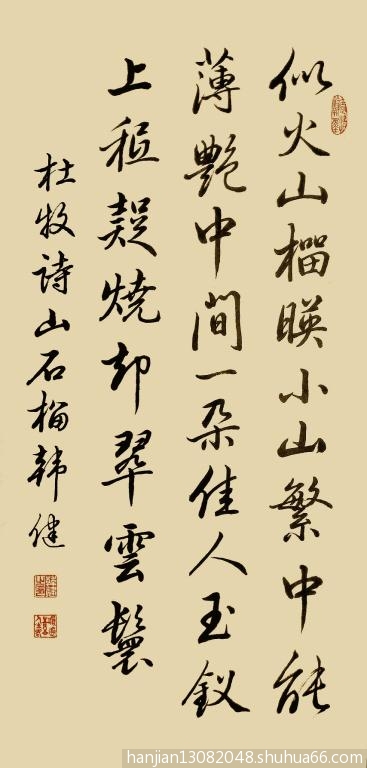 似火山榴暎小山繁中能
薄艷中間一朵佳人玉釵
上秪疑燒却翠雲鬟
杜牧詩山石榴韓健
hanjian13082048.shuhua66.com